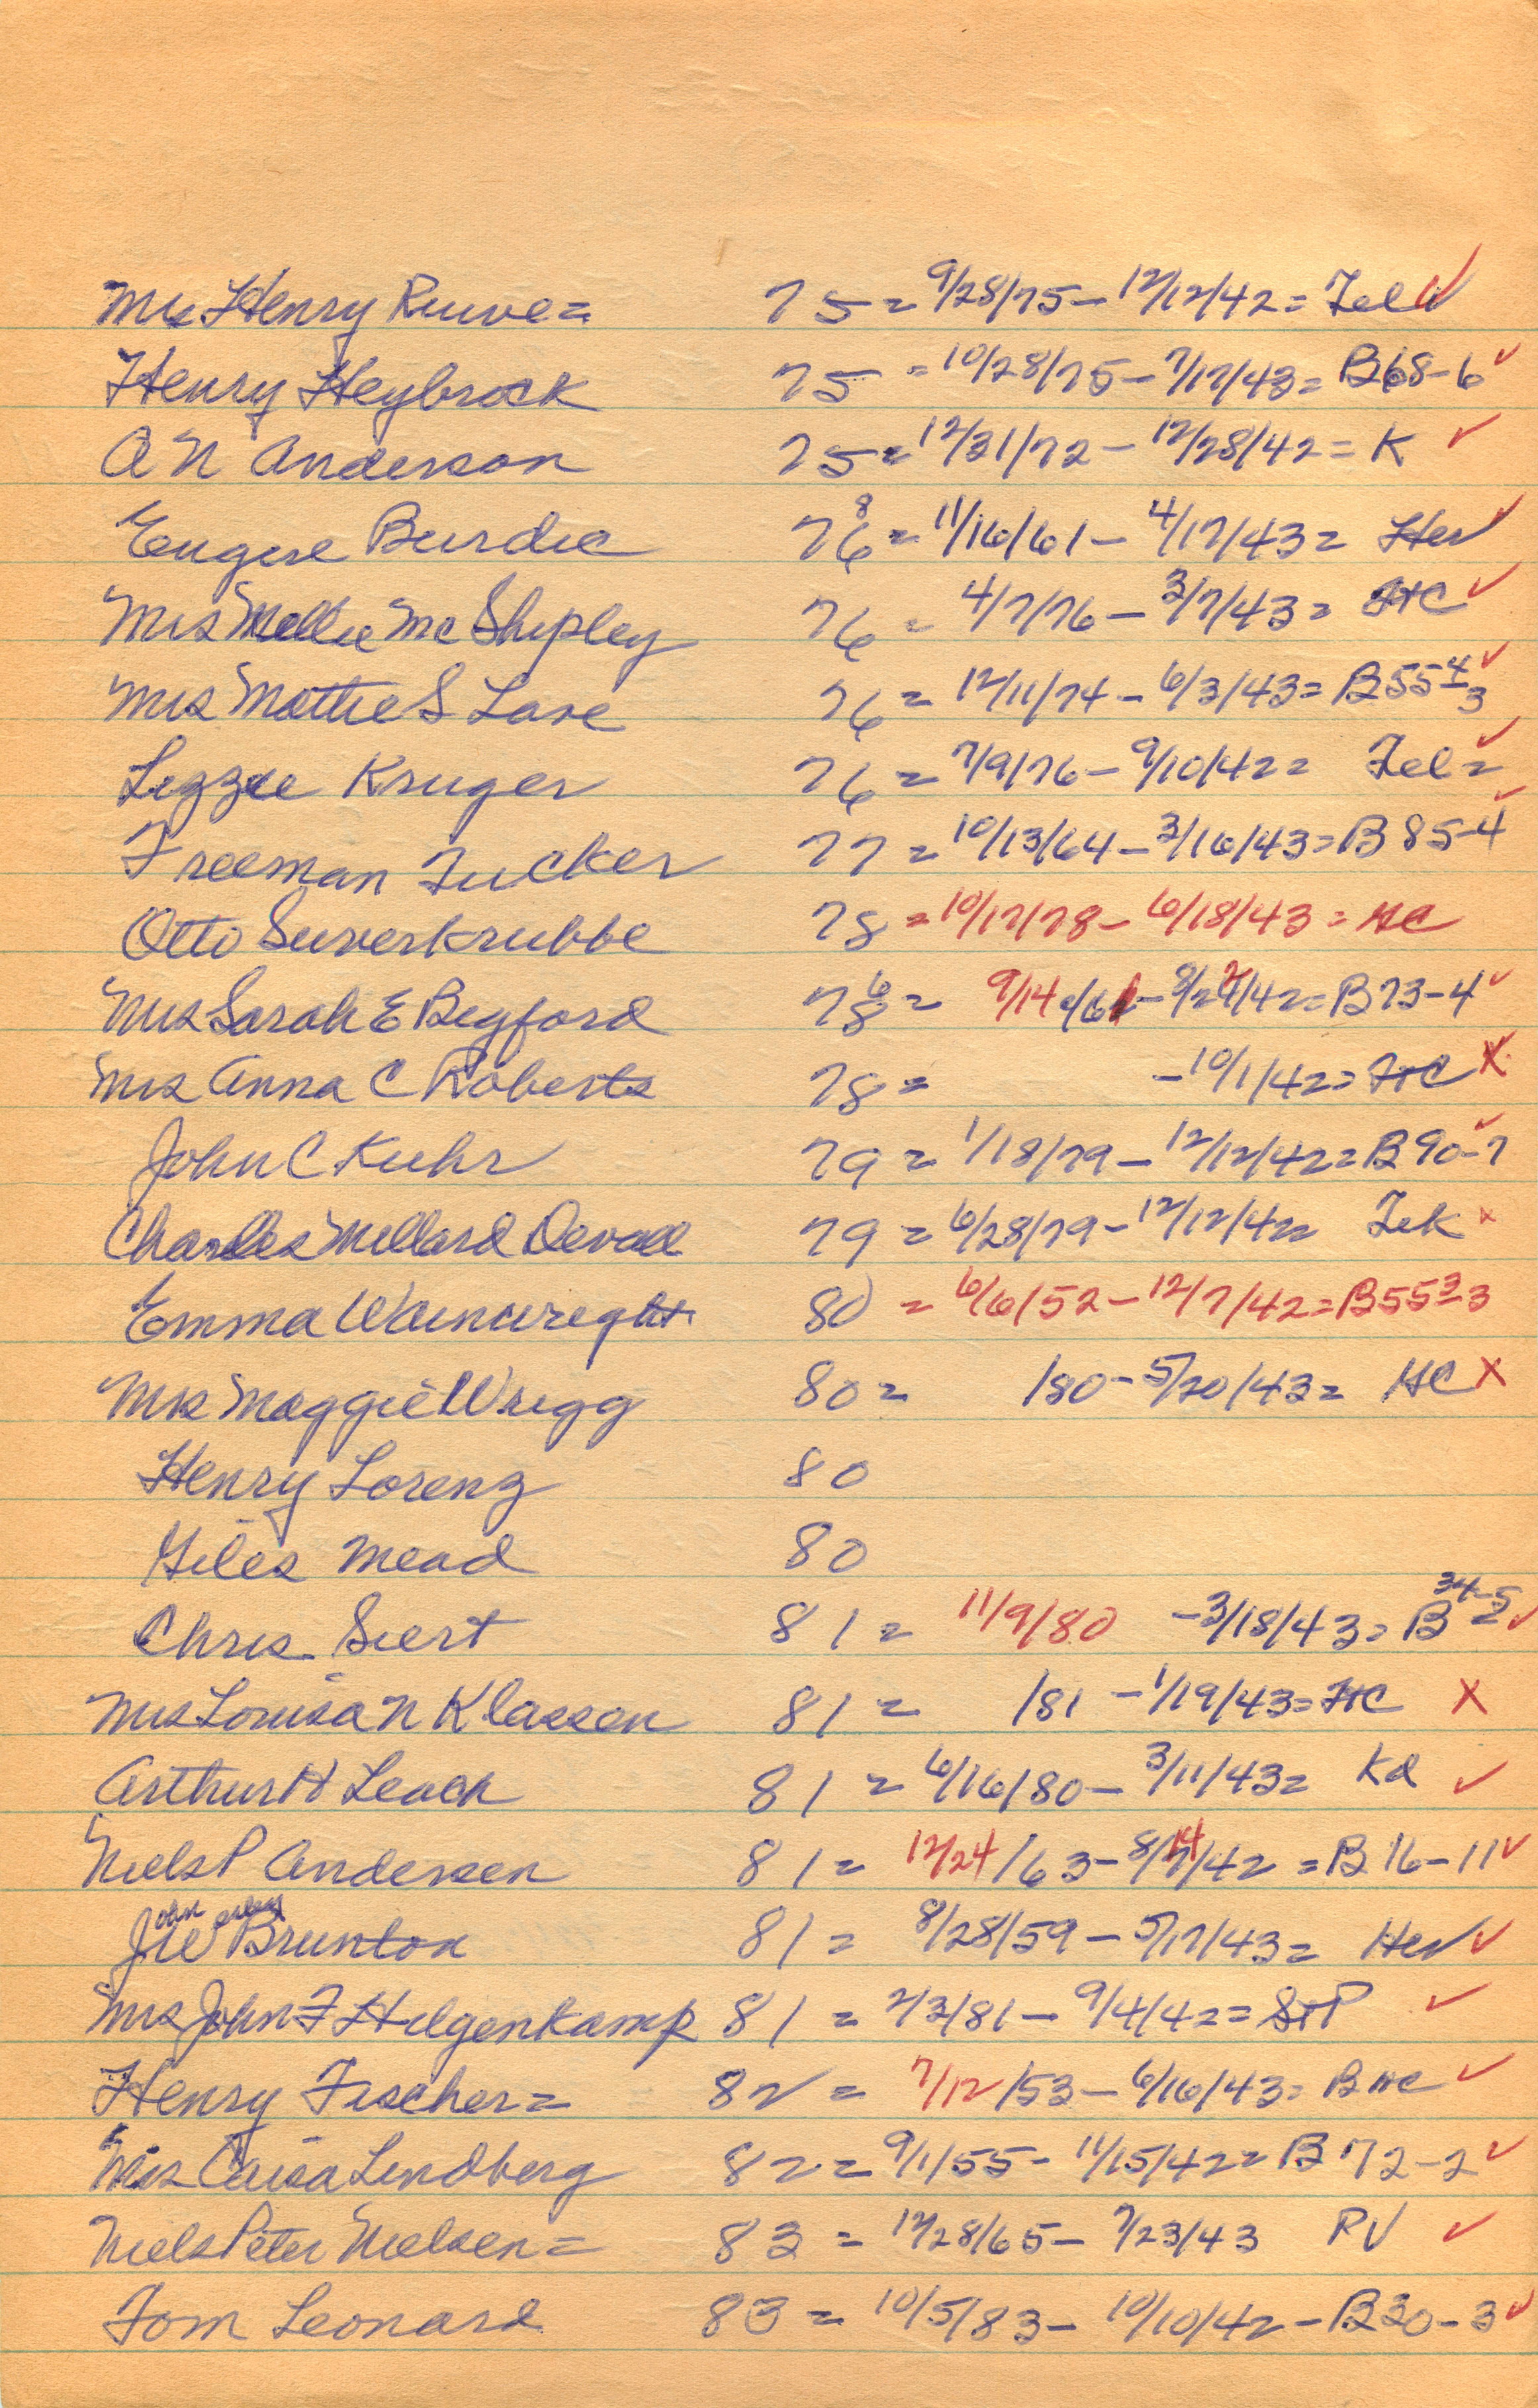 Mrs Henry Ruwe = 75 = 9/28/75 – 12/12/42 = Tel ✓
Henry Heybrock 75 = 10/28/75 – 7/17/43 = B68-6 ✓
A N Anderson 75 = 12/31/72 – 12/28/42 = K ✓
Eugene Burdic 76 8 = 11/16/61 – 4/17/43 = Her ✓
Mrs Mellie Mc Shipley 76 = 4/7/76 – 3/7/43 = HC ✓
Mrs Mattie S Lane 76 = 12/11/74 – 6/3/43 = B55 4-3 ✓
Lizzie Kruger 76 = 7/9/76 – 9/10/42 = Tel = ✓
Freeman Tucker 77 = 10/13/64 – 3/16/43 = B 85-4 ✓
Otto Suverkrubbe 78 = 10/17/78 – 6/18/43 = HC
Mrs Sarah E Bigford 78 6 = 9/14/61 – 8/24/42 = B73-4 ✓
Mrs Anna C Roberts 78 = – 10/1/42 = HC X
John C Kuhr 79 = 1/18/79 – 12/12/42 = B90-7 ✓
Charles Millard Devall 79 = 6/28/79 – 12/12/42 Tek x
Emma Wainwright 80 = 6/6/52 – 12/7/42 = B55 3-3
Mrs Maggie Wrigg 80 = /80 – 5/20/43 = HC X
Henry Lorenz 80
Giles Mead 80
Chris Siert 81 = 11/9/80 – 3/18/43 = B 34-5 ✓
Mrs Louisa N Klassen 81 = /81 – 1/19/43 = HC X
Arthur H Leach 81 = 6/16/80 – 3/11/43 = Kd ✓
Niels P Andersen 81 = 12/24/63 – 8/14/42 = B 16-11 ✓
J W Brunton 81 = 8/28/59 – 5/17/43 = Her ✓
Mrs John F Hilgenkamp 81 = 2/3/81 – 9/4/42 = StP ✓
Henry Fischer = 82 = 7/12/53 – 6/16/43 = B HC ✓
Mrs Caisa Lindberg 82 = 9/1/55 – 11/15/42 = B 72-2 ✓
Niels Peter Nielsen = 83 = 12/28/65 – 7/23/43 RV ✓
Tom Leonard 83 = 10/5/83 – 10/10/42 – B30-3 ✓